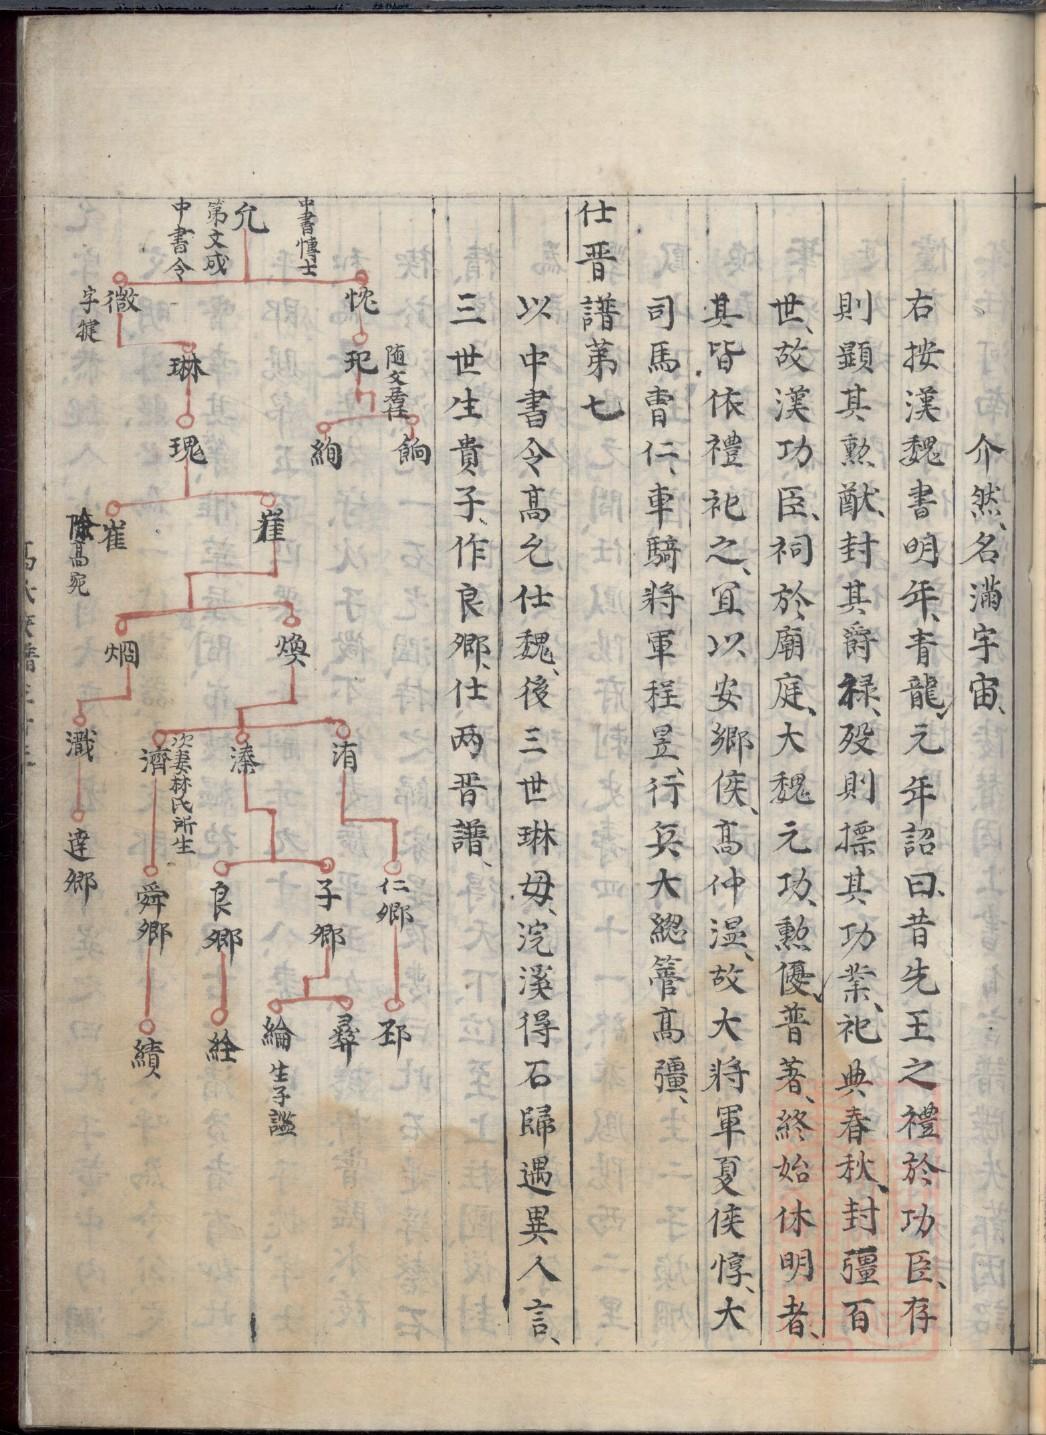 介然、名滿宇宙、
右按漢魏書明年、青龍元年詔曰、昔先王之禮於功臣、存
則顯其勲猷、封其爵禄、殁則摽其功業、祀典春秋、封疆百
世、故漢功臣、祠於廟庭、大魏元功、勲優、普著、終始休明者、
其皆依禮祀之、宜以安鄉侯、高仲濕、故大將軍夏侯惇、大
司馬曹仁、車騎將軍程昱、行兵大緫管高彊、
仕晋譜第七
以中書令高允仕魏、後三世琳母、浣溪得石歸遇異人言、
三世生貴子、作良鄉、仕两晋譜、
中書愽士
允
第文成
中書令
忱
㣲
字㨗
玘
随文羣徃
琳
餉
絢
瑰
崔
崔
除高宛
煥
烱
洧
溱
濟
次妻林氏所生
濈
仁鄉
子鄉
良鄉
舜鄉
達鄉
邳
彛
綸
生子謐
絟
績